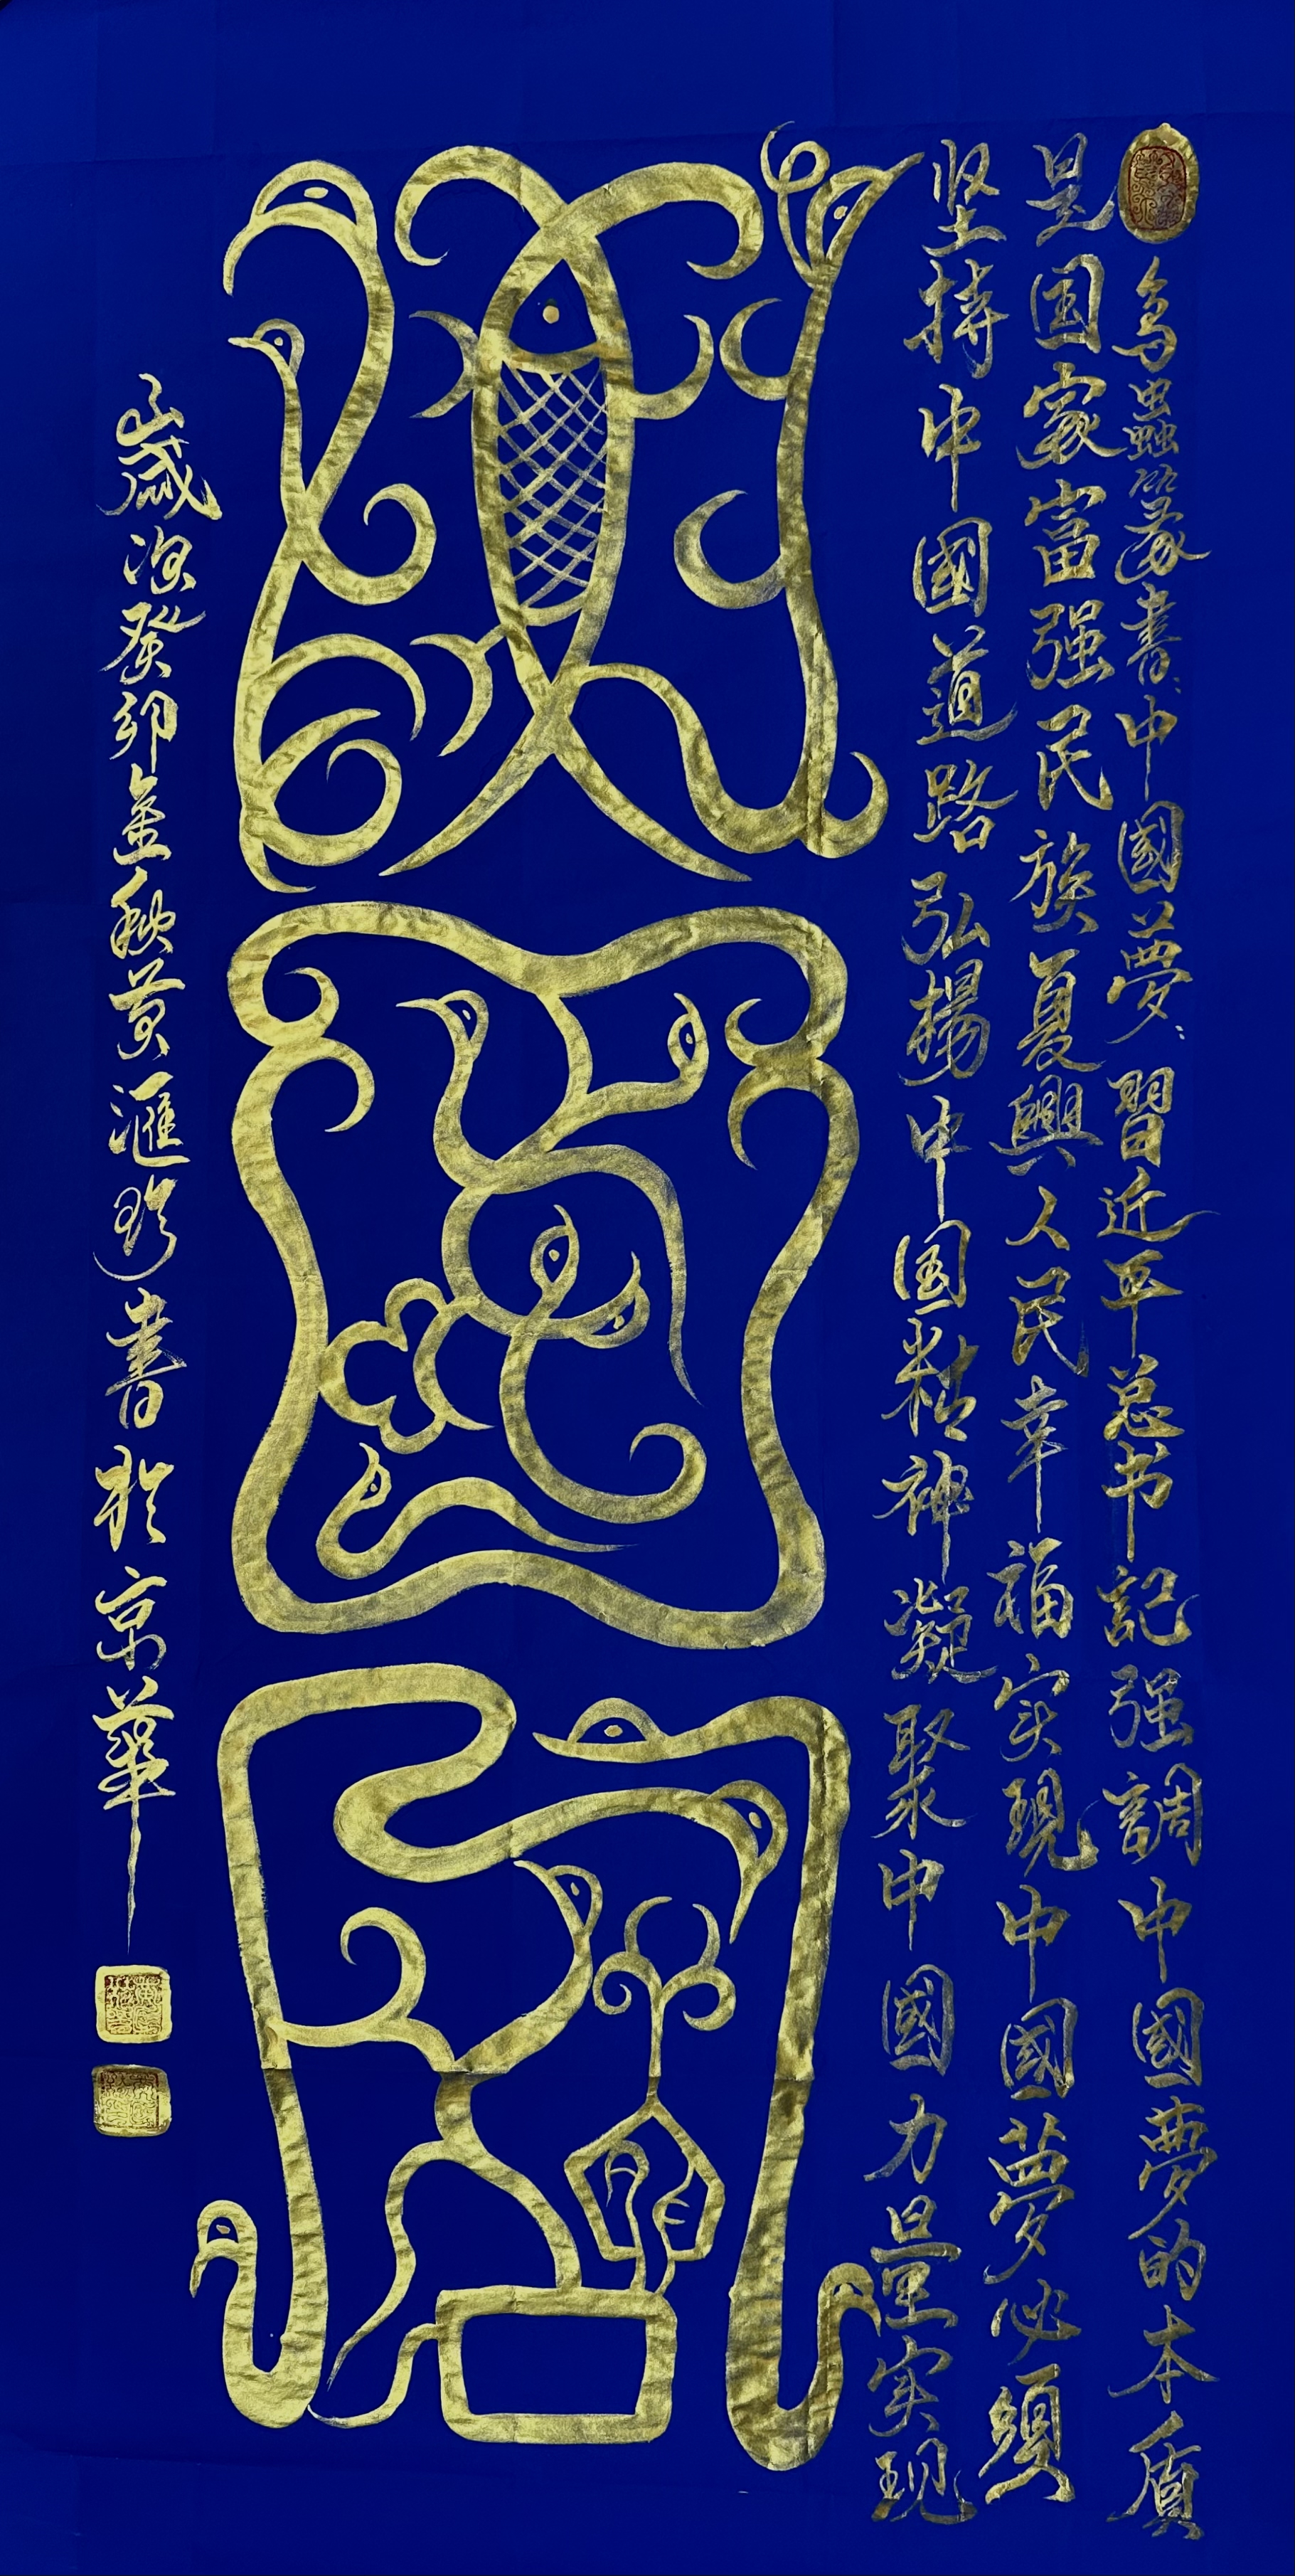 鸟蟲篆書:中國夢:習近平总书記强調中國夢的本質
是国家富强民族复興人民幸福实現中國夢必須
坚持中國道路弘揚中国精神凝聚中國力量实现
中國夢
歲次癸卯金秋黄滙珍書於京華